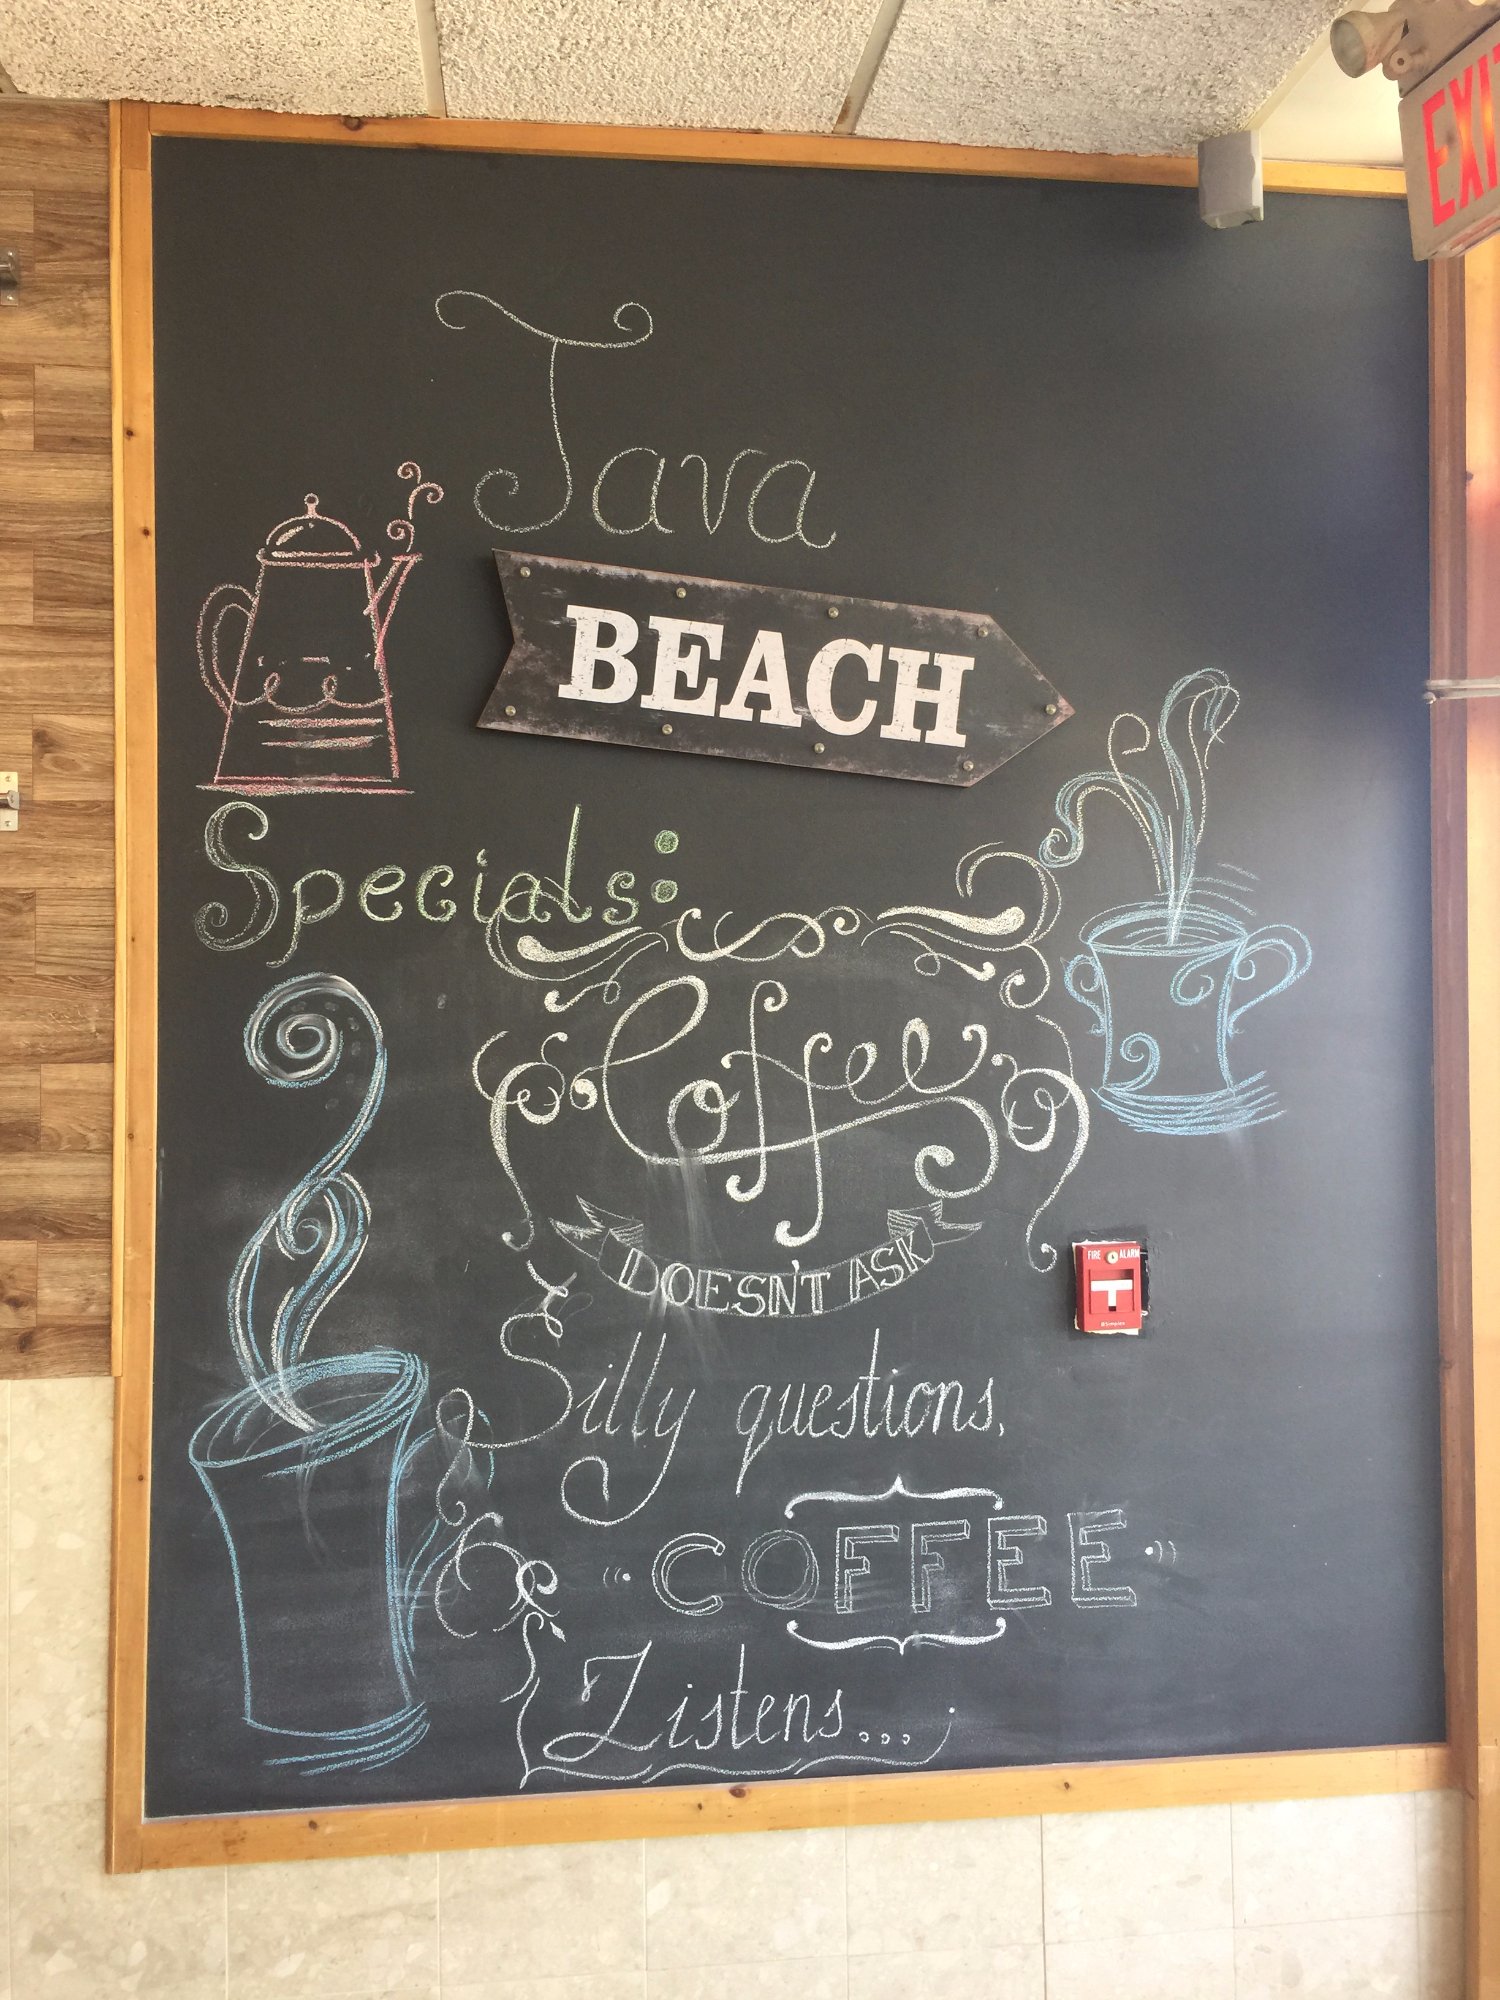 EXIT
Java
BEACH
Specials:
Coffee
DOESN'T ASK
FIRE ALARM
Silly questions,
COFFEE
Listens...